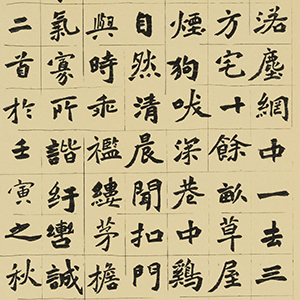 落塵網中一去三
方宅十餘畝草屋
煙狗吠深巷中鷄
自然清晨聞扣門
與時乖襤縷茅檐
氣寡所諧紆轡誠
二首於壬寅之秋